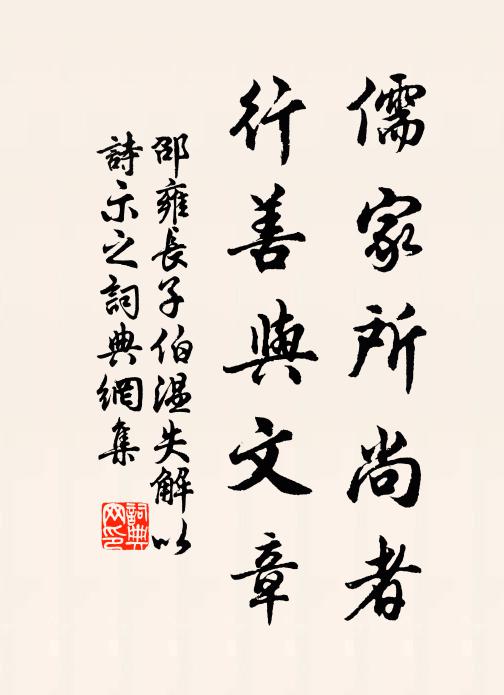 儒家所尚者
行善與文章
邵雍長子伯溫失解以
詩示之詞典網集
詞典
网印